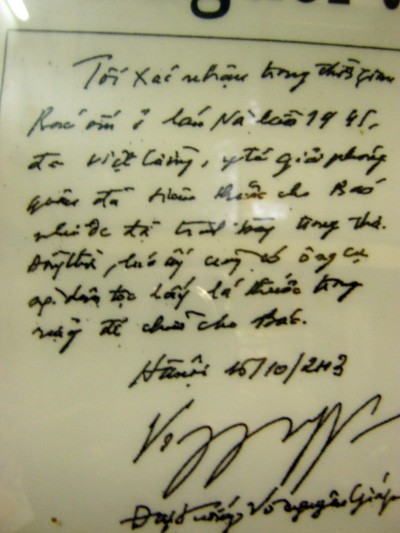 Tôi xác nhận trong thời gian
Bác ốm ở lán Nà Lừa 1945,
đ/c Việt Cường, y tá giải phóng
quân đã tiêm thuốc cho Bác
như đ/c đã trình bày trong thư.
Đồng thời, lúc ấy cũng có ông cụ
người dân tộc lấy lá thuốc trong
rừng để chữa cho Bác.
Hà Nội 15/10/2003
Võ
Đại tướng Võ Nguyên Giáp